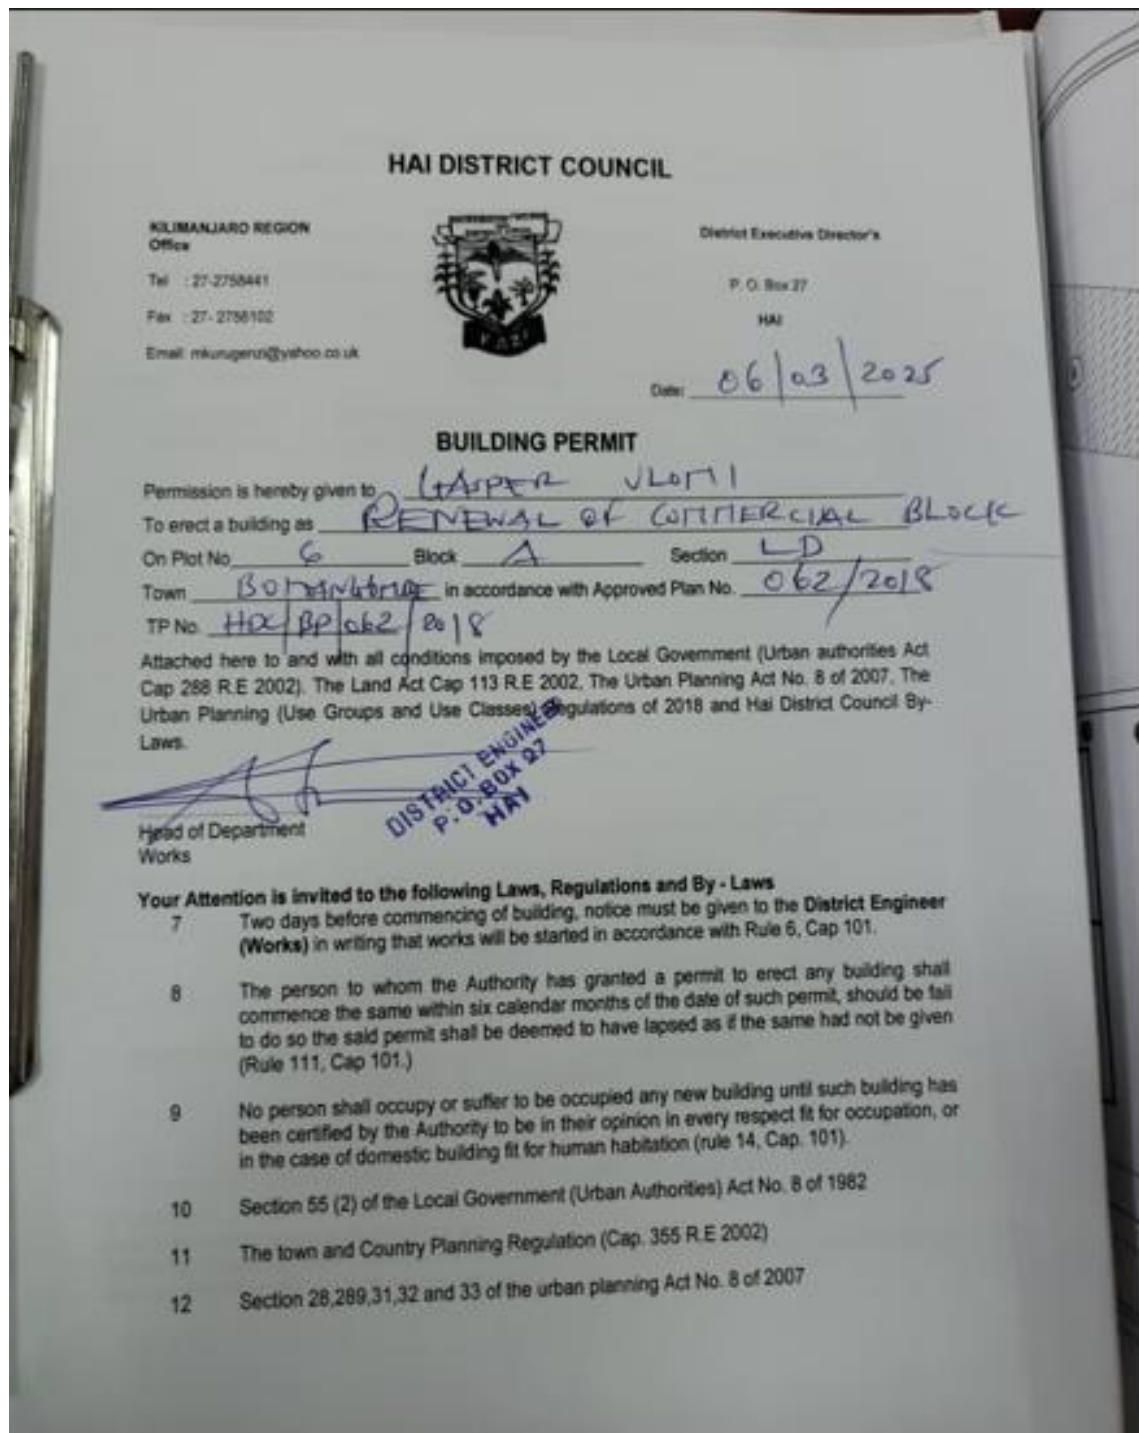 HAI DISTRICT COUNCIL
KILIMANJARO REGION
Office
District Executive Director's
Tel : 27-2758441
P. O. Box 27
Fax : 27- 2758102
HAI
Email: mkurugenzi@yahoo.co.uk
Date: 06/03/2025
BUILDING PERMIT
Permission is hereby given to GASPER
To erect a building as RENEWAL OF COMMERCIAL BLOCK
On Plot No 6 Block A Section LD
Town in accordance with Approved Plan No. 062/2018
TP No. HDC/BP/062/2018
Attached here to and with all conditions imposed by the Local Government (Urban authorities Act
Cap 288 R.E 2002). The Land Act Cap 113 R.E 2002, The Urban Planning Act No. 8 of 2007, The
Urban Planning (Use Groups and Use Classes) Regulations of 2018 and Hai District Council By-
Laws.
DISTRICT ENGINEER
P. O. BOX 27
HAI
Head of Department
Works
Your Attention is invited to the following Laws, Regulations and By - Laws
7 Two days before commencing of building, notice must be given to the District Engineer
(Works) in writing that works will be started in accordance with Rule 6, Cap 101.
8 The person to whom the Authority has granted a permit to erect any building shall
commence the same within six calendar months of the date of such permit, should be fail
to do so the said permit shall be deemed to have lapsed as if the same had not be given
(Rule 111, Cap 101.)
9 No person shall occupy or suffer to be occupied any new building until such building has
been certified by the Authority to be in their opinion in every respect fit for occupation, or
in the case of domestic building fit for human habitation (rule 14, Cap. 101).
10 Section 55 (2) of the Local Government (Urban Authorities) Act No. 8 of 1982
11 The town and Country Planning Regulation (Cap. 355 R.E 2002)
12 Section 28,289,31,32 and 33 of the urban planning Act No. 8 of 2007